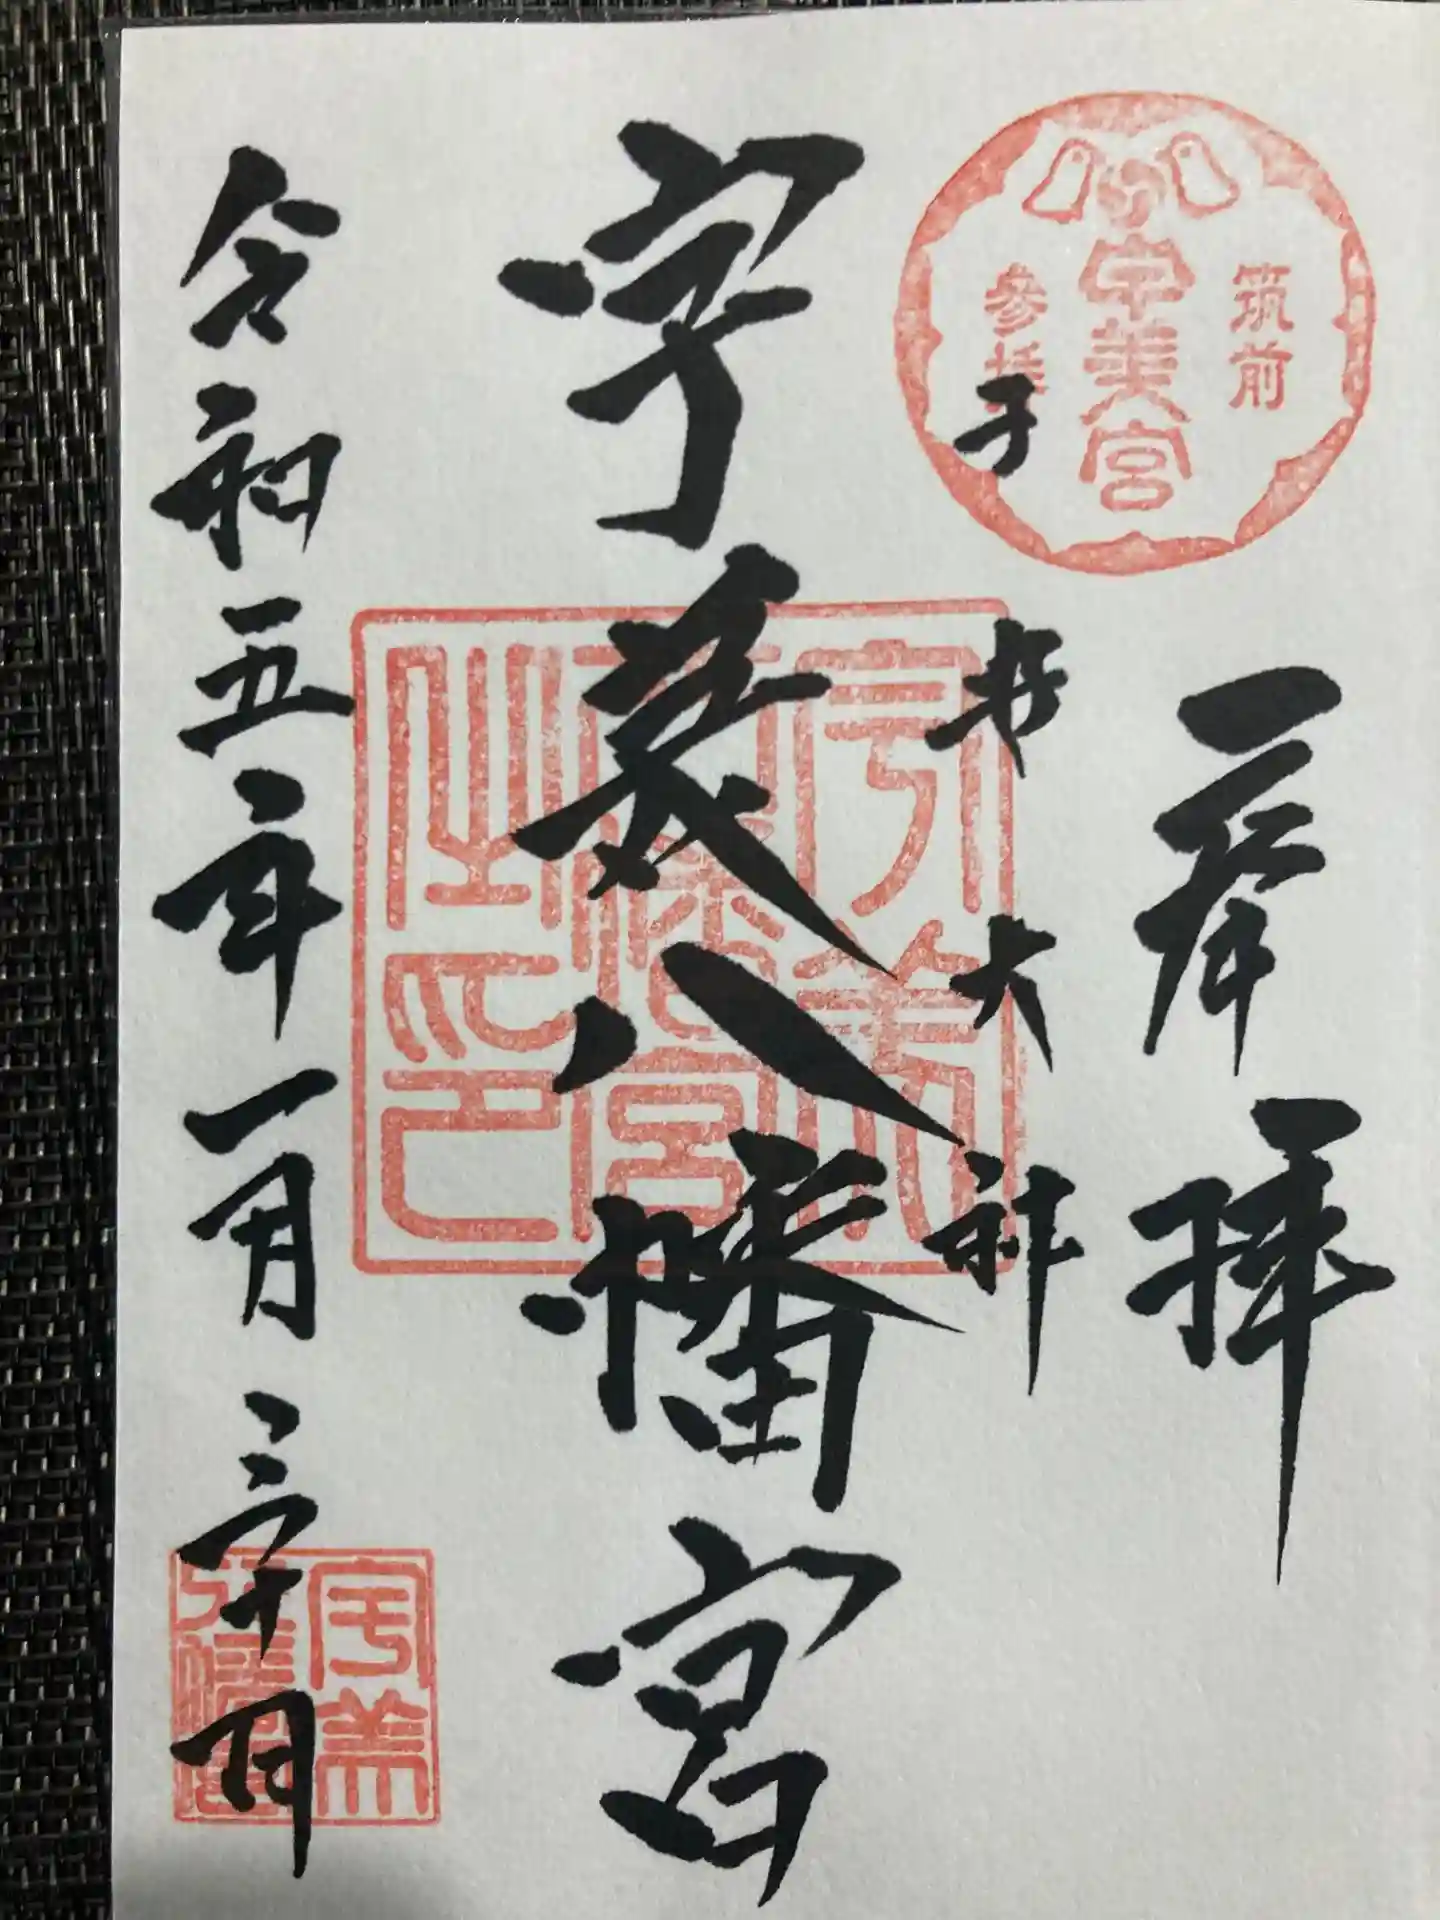 奉拝
筑前
宇美宮
参拝
子安大神
宇美八幡宮
宇美八幡宮之印
令和五年一月三十日
宇美八幡宮